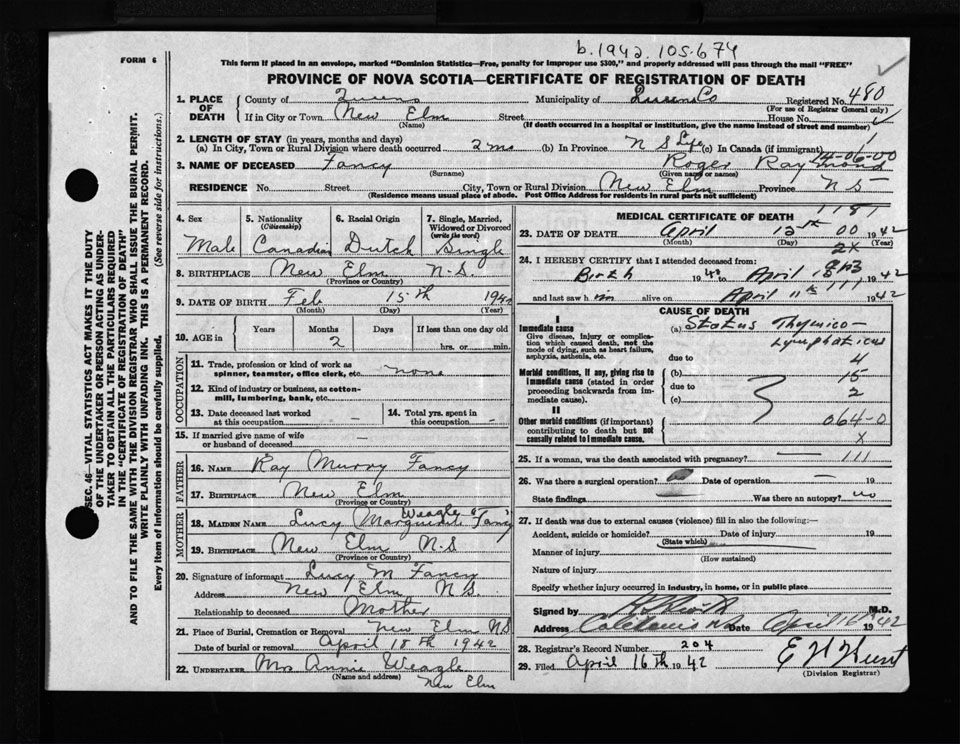 b.1942.105.674
FORM 6
This form if placed in an envelope, marked "Dominion Statistics—Free, penalty for improper use $300," and properly addressed will pass through the mail "FREE"
PROVINCE OF NOVA SCOTIA—CERTIFICATE OF REGISTRATION OF DEATH
SEC. 46—VITAL STATISTICS ACT MAKES IT THE DUTY
OF THE UNDERTAKER OR PERSON ACTING AS UNDER-
TAKER TO OBTAIN ALL THE PARTICULARS REQUIRED
IN THE "CERTIFICATE OF REGISTRATION OF DEATH"
AND TO FILE THE SAME WITH THE DIVISION REGISTRAR WHO SHALL ISSUE THE BURIAL PERMIT.
WRITE PLAINLY WITH UNFADING INK. THIS IS A PERMANENT RECORD.
Every item of Information should be carefully supplied. (See reverse side for instructions.)
1. PLACE OF DEATH County of Queens Municipality of Queens Co Registered No. 480
(For use of Registrar General only)
If in City or Town New Elm Street House No.
(Name) (If death occurred in a hospital or institution, give the name instead of street and number)
2. LENGTH OF STAY (in years, months and days)
(a) In City, Town or Rural Division where death occurred 2 mo (b) In Province N S Life (c) In Canada (if immigrant)
14-06-00
3. NAME OF DECEASED Fancy Roger Raymond
(Surname) (Given name or names)
RESIDENCE No. Street City, Town or Rural Division New Elm Province N S
(Residence means usual place of abode. Post Office Address for residents in rural parts not sufficient)
4. Sex 5. Nationality (Citizenship) 6. Racial Origin 7. Single, Married, Widowed or Divorced (write the word)
Male Canadian Dutch Single
8. BIRTHPLACE New Elm N.S.
(Province or Country)
9. DATE OF BIRTH Feb 15th 1942
(Month) (Day) (Year)
10. AGE in Years Months Days If less than one day old
2 hrs. or min.
OCCUPATION
11. Trade, profession or kind of work as spinner, teamster, office clerk, etc. none
12. Kind of industry or business, as cotton-mill, lumbering, bank, etc.
13. Date deceased last worked at this occupation 14. Total yrs. spent in this occupation
15. If married give name of wife or husband of deceased
FATHER
16. NAME Ray Murry Fancy
17. BIRTHPLACE New Elm
(Province or Country)
MOTHER
Weagle
18. MAIDEN NAME Lucy Marguerite Fancy
19. BIRTHPLACE New Elm N.S
(Province or Country)
20. Signature of informant Lucy M Fancy
Address New Elm N S.
Relationship to deceased Mother
21. Place of Burial, Cremation or Removal New Elm N S
Date of burial or removal April 18th 1942
22. UNDERTAKER Mrs Annie Weagle
(Name and address) New Elm
MEDICAL CERTIFICATE OF DEATH
1181
23. DATE OF DEATH April 12th 00 1942
(Month) (Day) (Year)
2x
24. I HEREBY CERTIFY that I attended deceased from:
Birth 19 April 1942
and last saw h im alive on April 11th 111 1942
CAUSE OF DEATH
I
Immediate cause (a) Status Thymico-
Give disease, injury or complication which caused death, not the mode of dying, such as heart failure, asphyxia, asthenia, etc. Lymphaticus
due to 4
Morbid conditions, if any, giving rise to immediate cause (stated in order proceeding backwards from immediate cause). (b) 15
due to 2
(c)
II
Other morbid conditions (if important) contributing to death but not causally related to immediate cause. 064-0
x
25. If a woman, was the death associated with pregnancy? 111
26. Was there a surgical operation? no Date of operation 19
State findings Was there an autopsy? no
27. If death was due to external causes (violence) fill in also the following:—
Accident, suicide or homicide? Date of injury 19
(State which)
Manner of injury
(How sustained)
Nature of injury
Specify whether injury occurred in industry, in home, or in public place
Signed by M.D.
Address Caledonia N.S. Date April 16 1942
28. Registrar's Record Number 204
29. Filed April 16th 1942 E H Hunt
(Division Registrar)